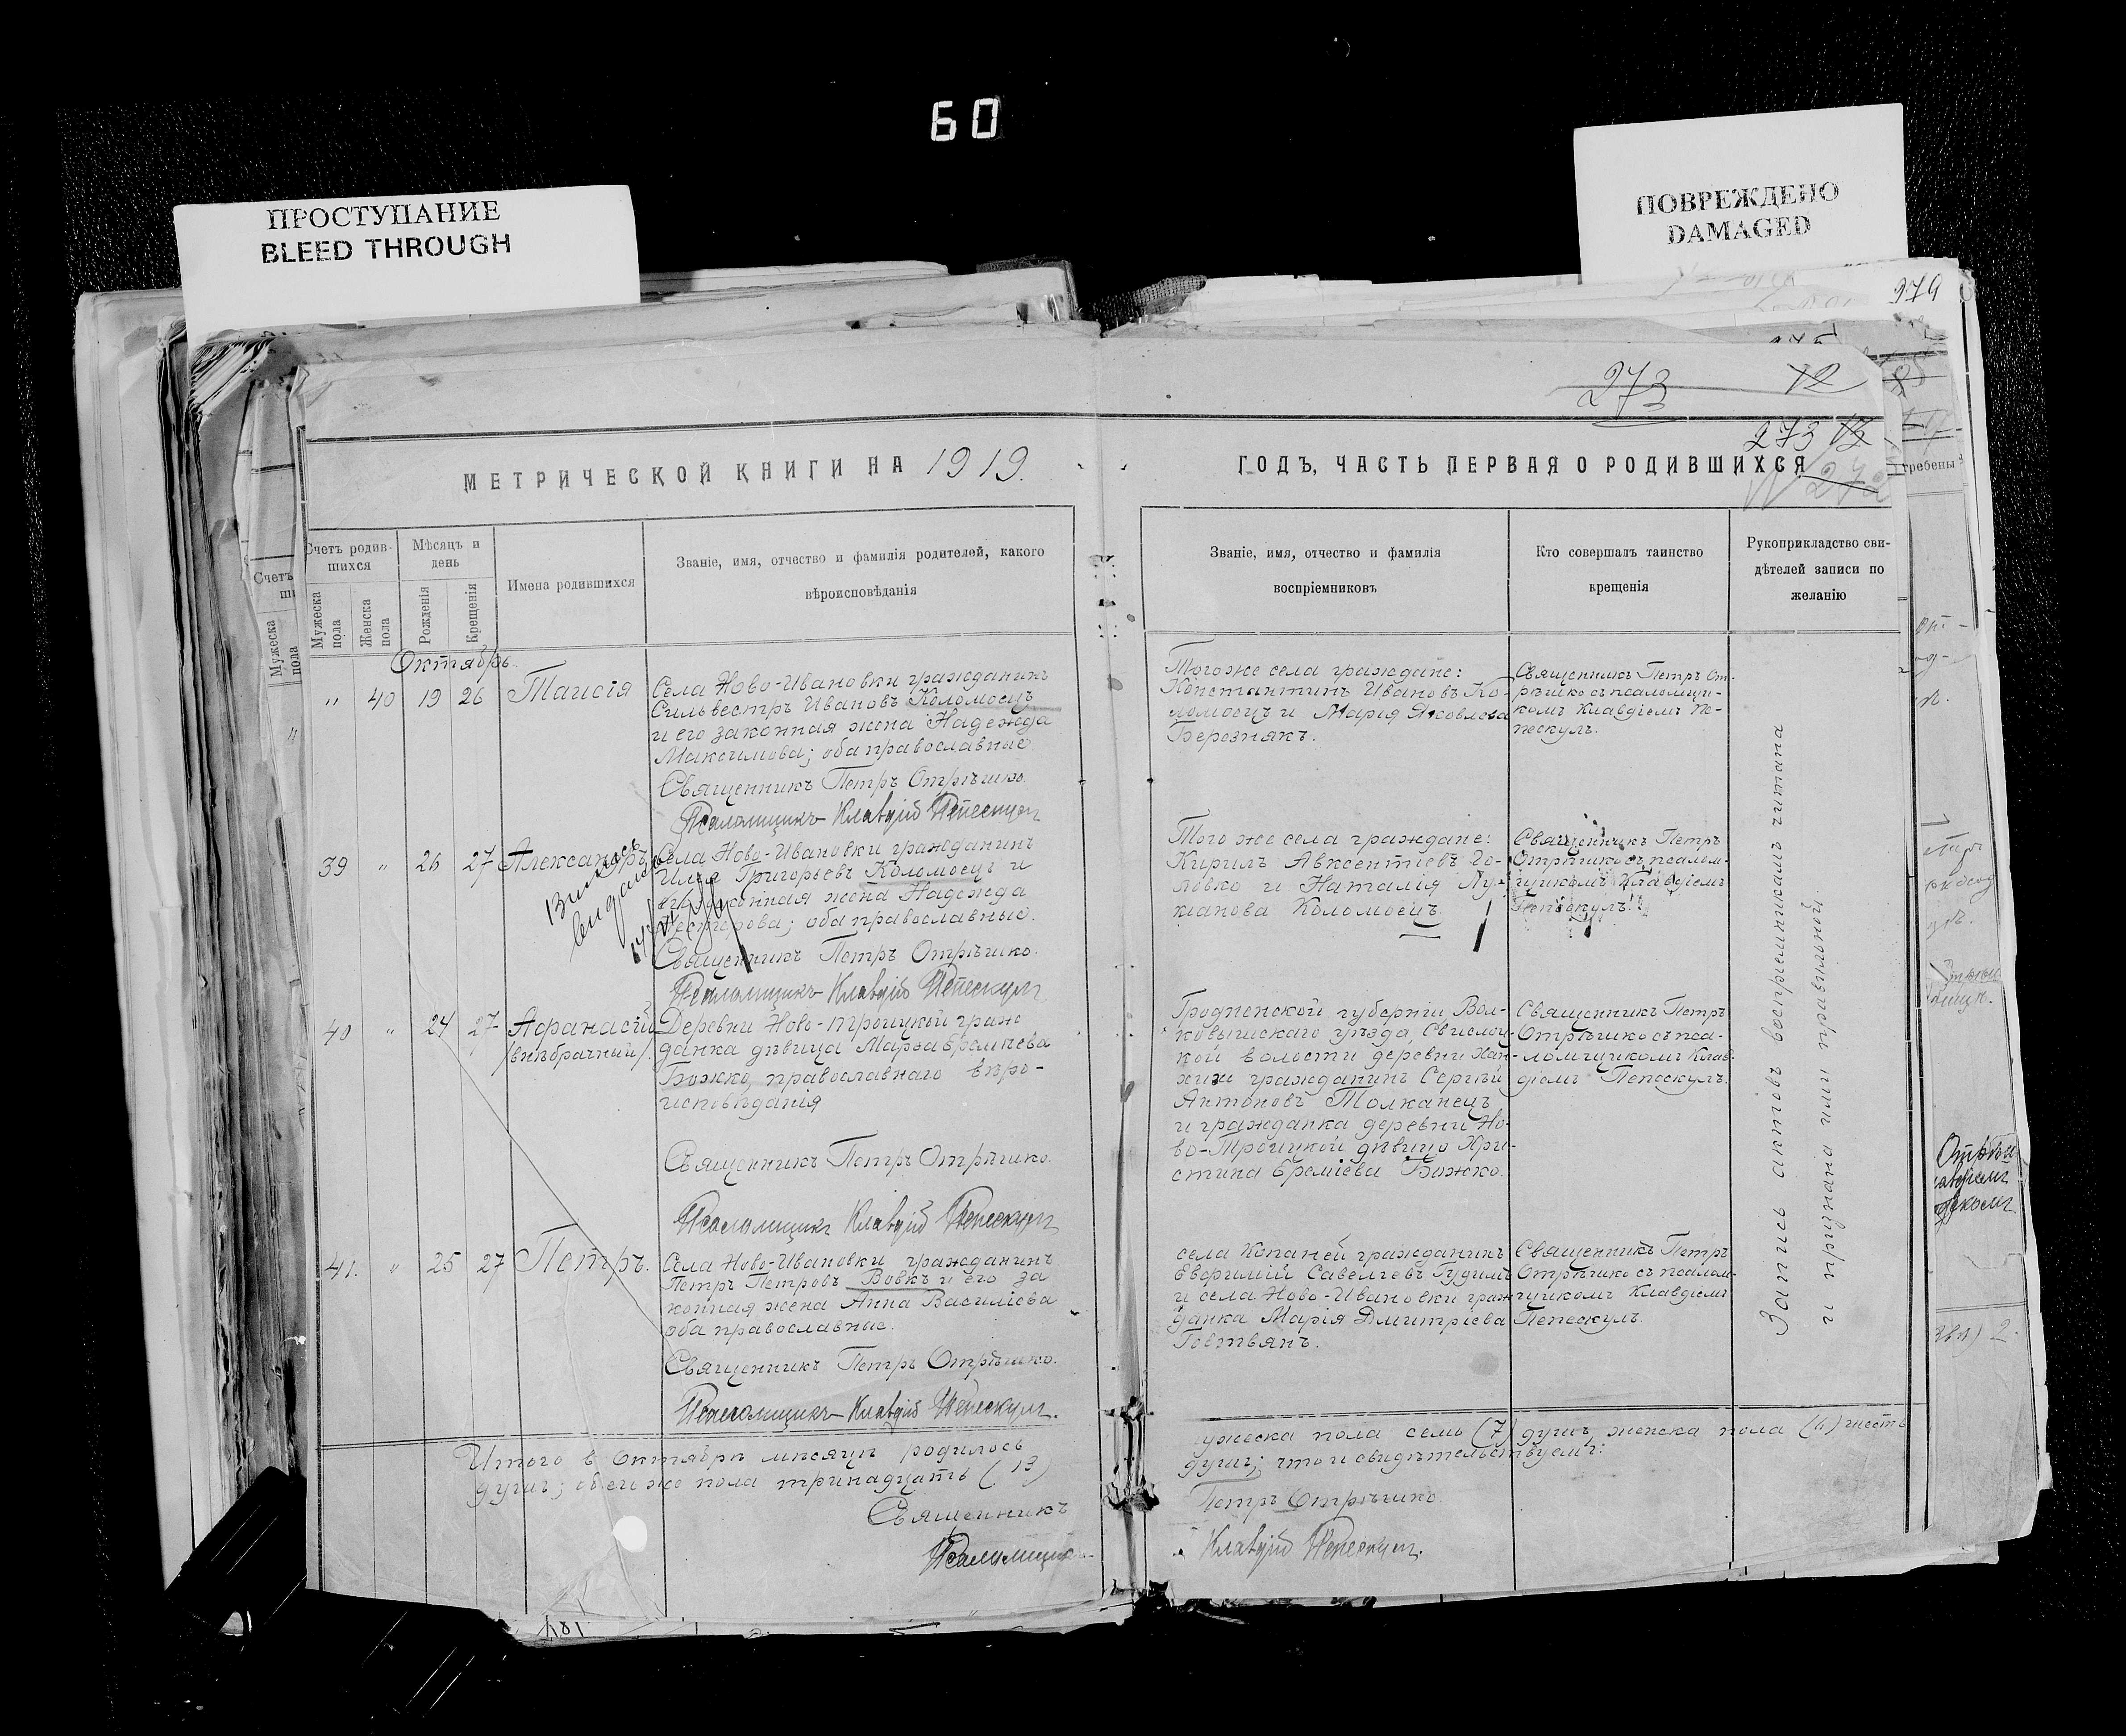 60
ПРОСТУПАНИЕ
BLEED THROUGH
ПОВРЕЖДЕНО
DAMAGED
274
275
273
12
273
МЕТРИЧЕСКОЙ КНИГИ НА 1919.
ГОДЪ, ЧАСТЬ ПЕРВАЯ О РОДИВШИХСЯ
Счетъ родив-
шихся
Мужеска пола
Женска пола
Мѣсяцъ и
день
Рожденія
Крещенія
Имена родившихся
Званіе, имя, отчество и фамилія родителей, какого
вѣроисповѣданія
Званіе, имя, отчество и фамилія
воспріемниковъ
Кто совершалъ таинство
крещенія
Рукоприкладство сви-
дѣтелей записи по
желанію
Октябрь
" 40 19 26 Таисія
Села Ново-Ивановки гражданинъ
Сильвестръ Ивановъ Коломоецъ
и его законная жена Надежда
Максимова; оба православные.
Священникъ Петръ Отрѣшко.
Псаломщикъ Клавдій Пепескул
Того же села граждане:
Константинъ Ивановъ Ко-
ломоецъ и Марія Яковлева
Березнякъ.
Священникъ Петръ От-
рѣшко съ псаломщи-
комъ Клавдіемъ Пе-
пескулъ.
39 " 26 27 Александръ
Села Ново-Ивановки гражданинъ
Илья Григорьевъ Коломоецъ и
его законная жена Надежда
Несторова; оба православные.
Священникъ Петръ Отрѣшко.
Псаломщикъ Клавдій Пепескул
Того же села граждане:
Кирилъ Авксентіевъ Го-
ловко и Наталія Лу-
кіанова Коломоецъ.
Священникъ Петръ
Отрѣшко съ псалом-
щикомъ Клавдіемъ
Пепескулъ.
40 " 24 27 Афанасій
/внѣбрачный/.
Деревни Ново-Троицкой граж
данка дѣвица Марфа Еремѣева
Божко, православнаго вѣро-
исповѣданія
Священникъ Петръ Отрѣшко.
Псаломщикъ Клавдій Пепескул
Гродненской губерніи, Вол-
ковышскаго уѣзда, Свислоч-
кой волости деревни Хан-
жи гражданинъ Сергѣй
Антоновъ Толканецъ
и гражданка деревни Но-
во-Троицкой дѣвица Хри-
стина Еремѣева Божко.
Священникъ Петръ
Отрѣшко съ пса-
ломщикомъ Клав-
діемъ Пепескулъ.
41. " 25 27 Петръ.
Села Ново-Ивановки гражданинъ
Петръ Петровъ Вовкъ и его за
конная жена Анна Василіева
оба православные.
Священникъ Петръ Отрѣшко.
Псаломщикъ Клавдій Пепескул.
села Копаней гражданинъ
Евфимій Савельевъ Гудимъ
и села Ново-Ивановки граж
данка Марія Дмитріева
Говтвянъ.
Священникъ Петръ
Отрѣшко съ псалом-
щикомъ Клавдіемъ
Пепескулъ.
Запись актовъ воспріемникамъ читана
и признана ими правильной.
Итого в Октябрѣ мѣсяцѣ родилось
мужеска пола семь (7) душъ, женска пола (6) шесть
душъ; обоихже пола тринадцать (13)
душъ; что и свидѣтельствуемъ:
Священникъ Петръ Отрѣшко.
Псаломщикъ Клавдій Пепескул.